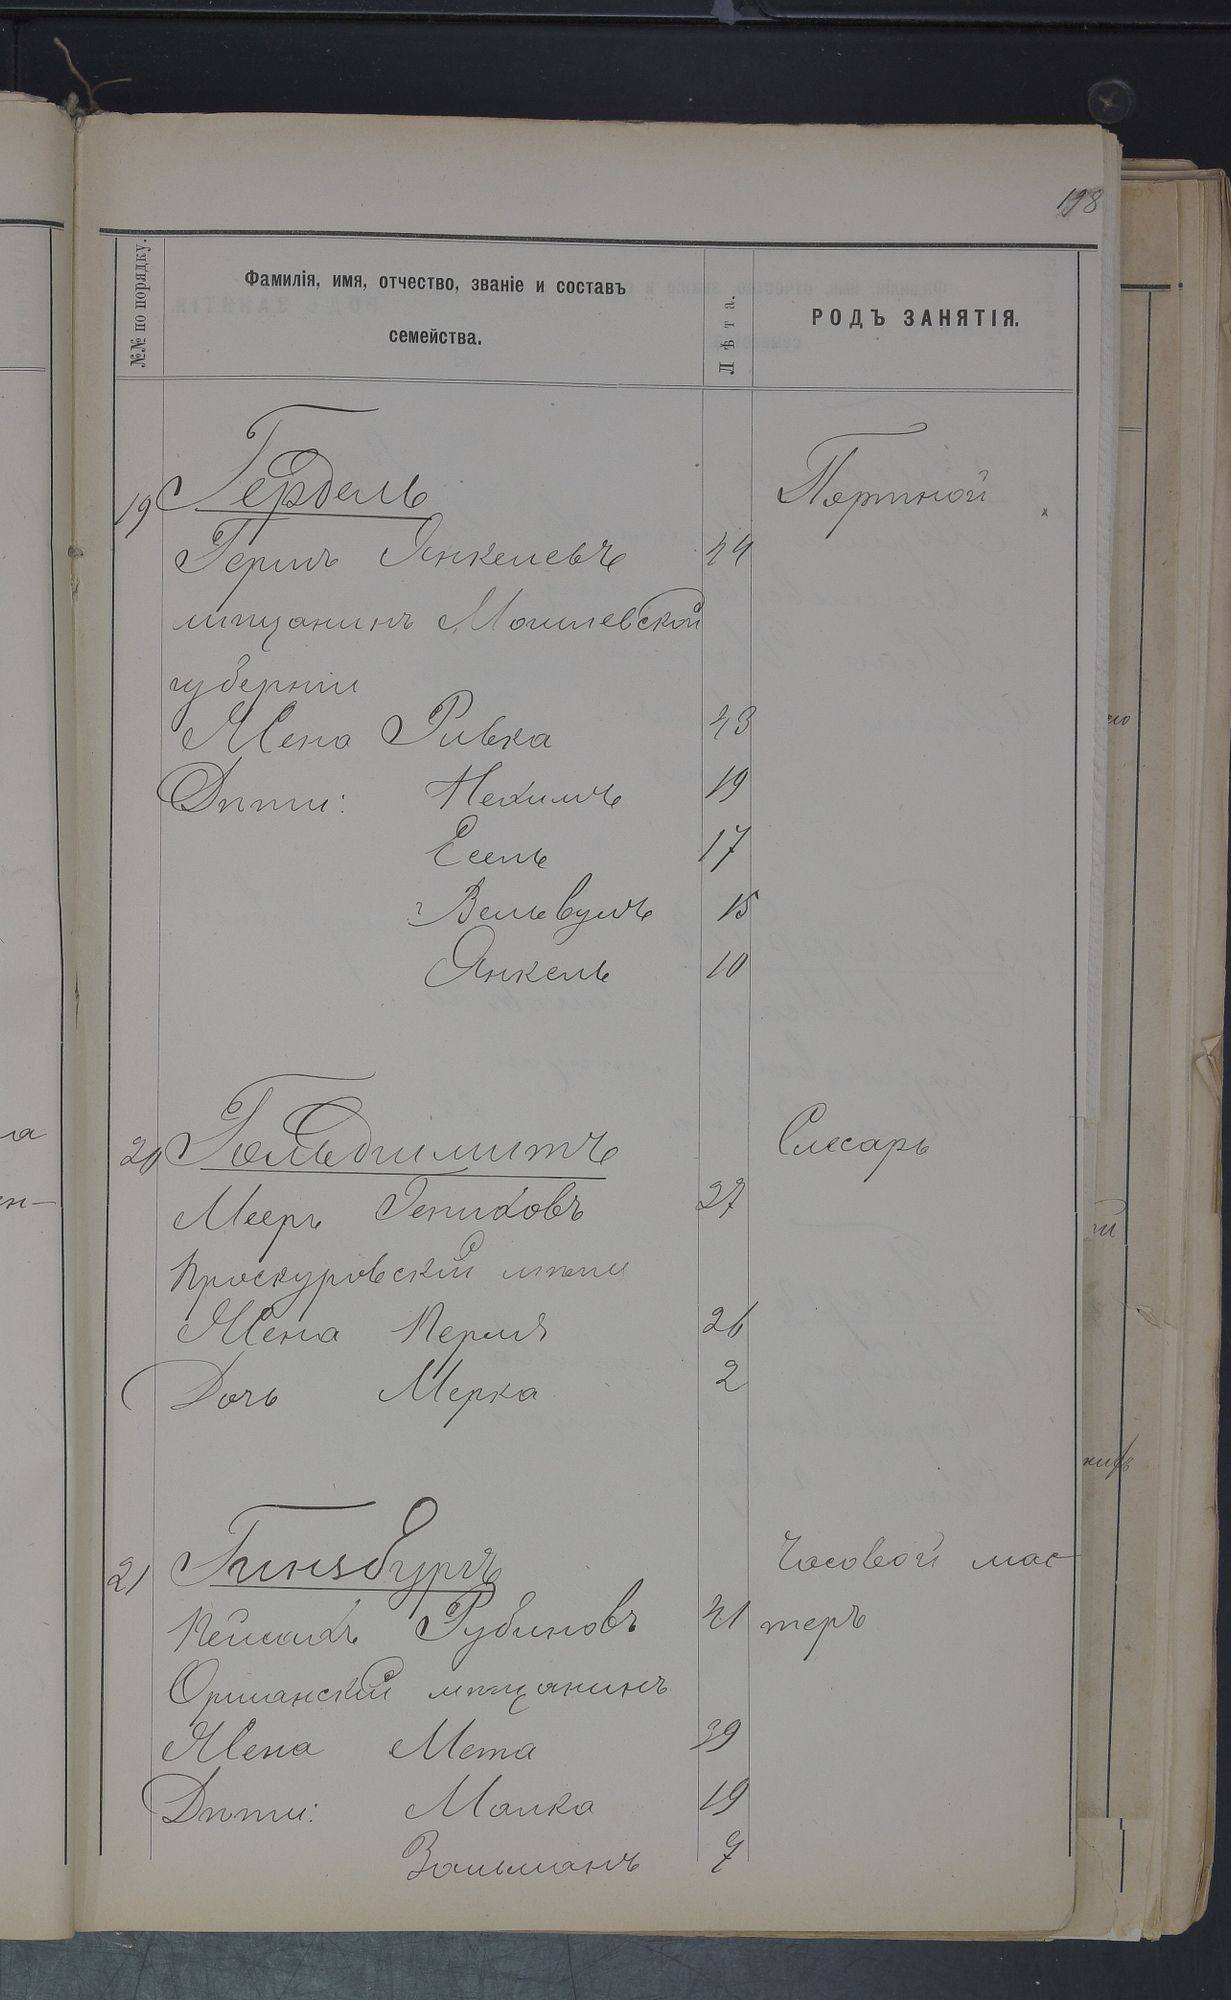 198
№№ по порядку.
Фамилія, имя, отчество, званіе и составъ
семейства.
Лѣта.
РОДЪ ЗАНЯТІЯ.
19 Гердель Портной
Герцъ Янкелевъ 44
мѣщанинъ Могилевской
губерніи
Жена Ривка 43
Дѣти: Нехимъ 19
Есель 17
Вельвулъ 15
Янкель 10
20 Гольдшмитъ Слесарь
Мееръ Гениховъ 27
Проскуровскій мѣщан
Жена Перля 26
Дочь Мерка 2
21 Гинзбургъ Часовой мас-
Пейсахъ Рубиновъ 41 теръ
Оршанскій мѣщанинъ
Жена Мета 39
Дѣти: Малка 19
Зальманъ 7